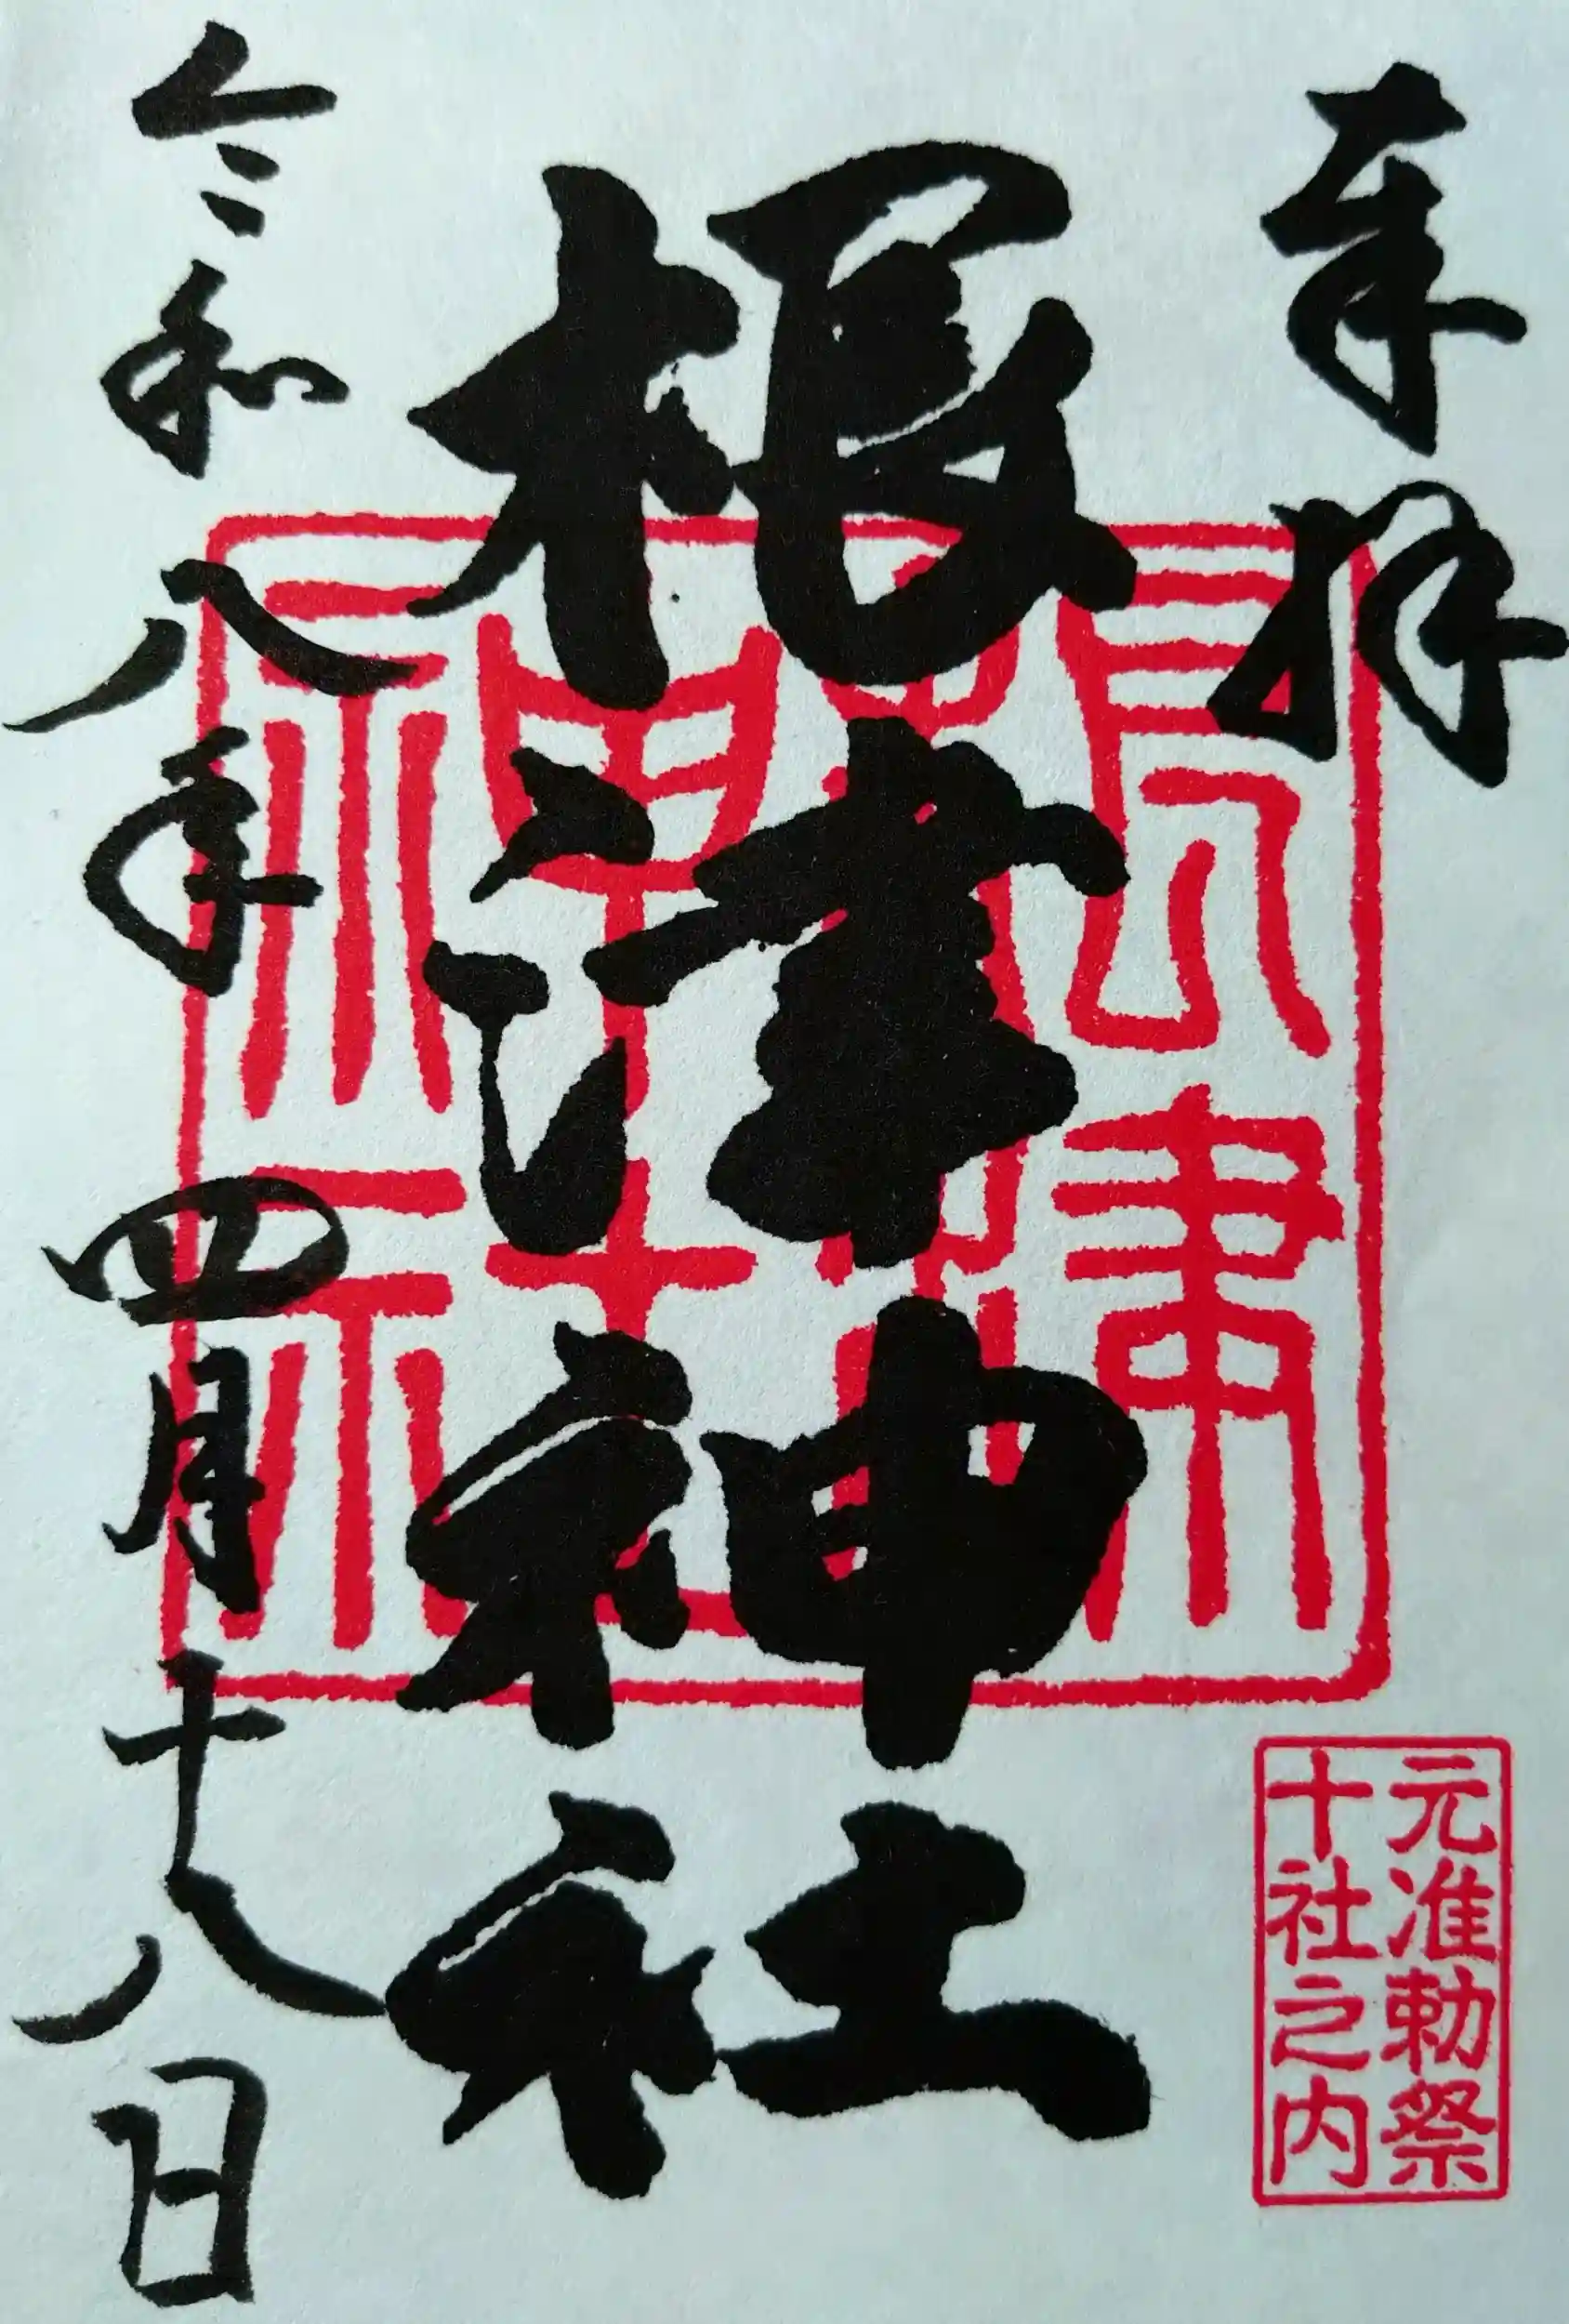 奉拝
根津神社
令和八年四月十八日
根津神社
元准勅祭
十社之内